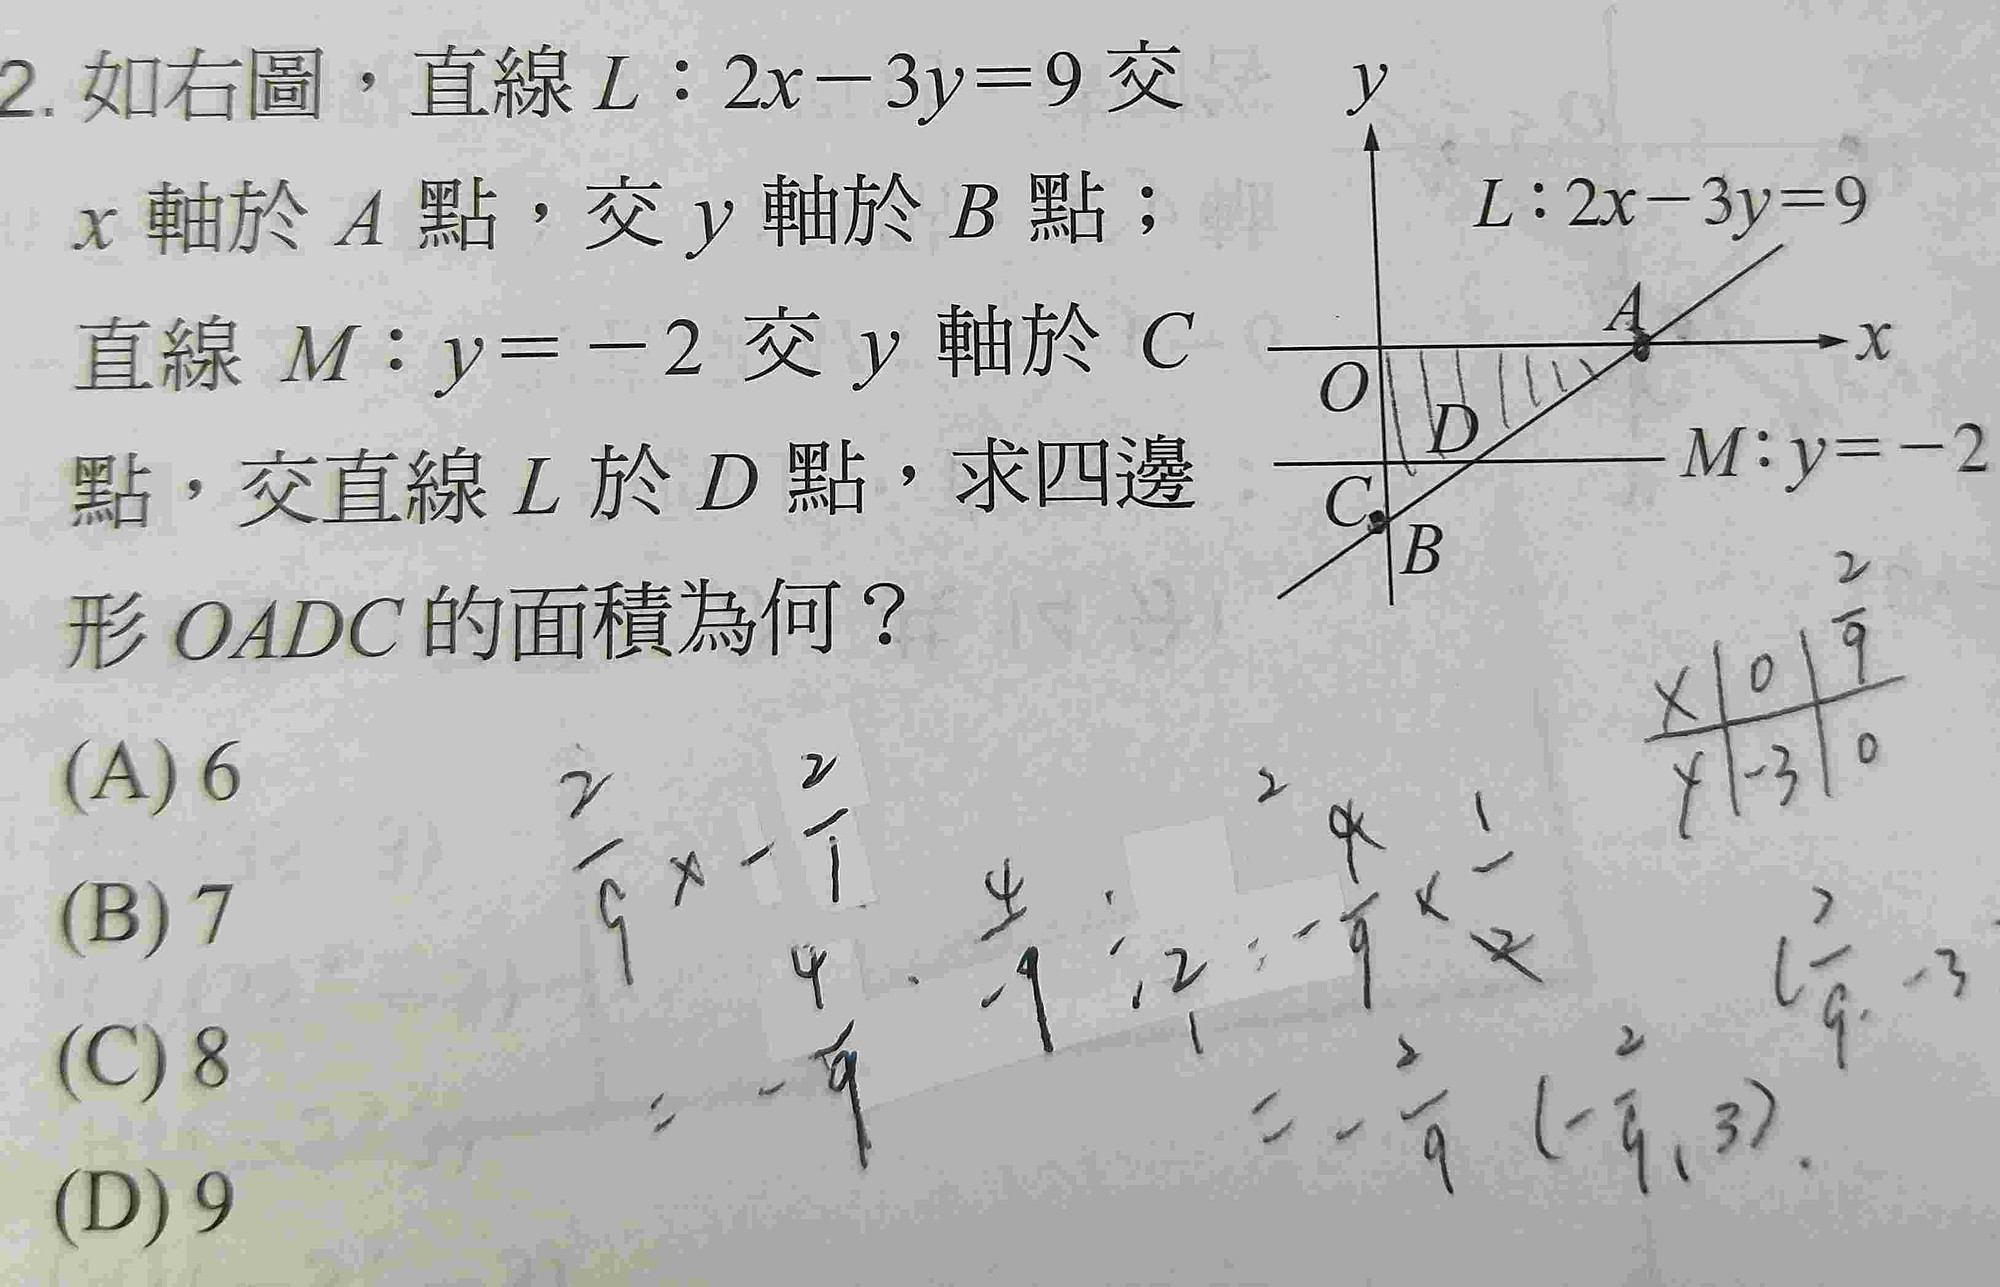 2. 如右圖，直線 L：2x－3y＝9 交
x 軸於 A 點，交 y 軸於 B 點；
直線 M：y＝－2 交 y 軸於 C
點，交直線 L 於 D 點，求四邊
形 OADC 的面積為何？
(A) 6
(B) 7
(C) 8
(D) 9
y
L：2x－3y＝9
A
x
O
D
M：y＝－2
C
B
x | 0 | 2/9
y | -3 | 0
2/9 x - 2/1
= - 4/9
= - 2/9 (- 2/9, 3).